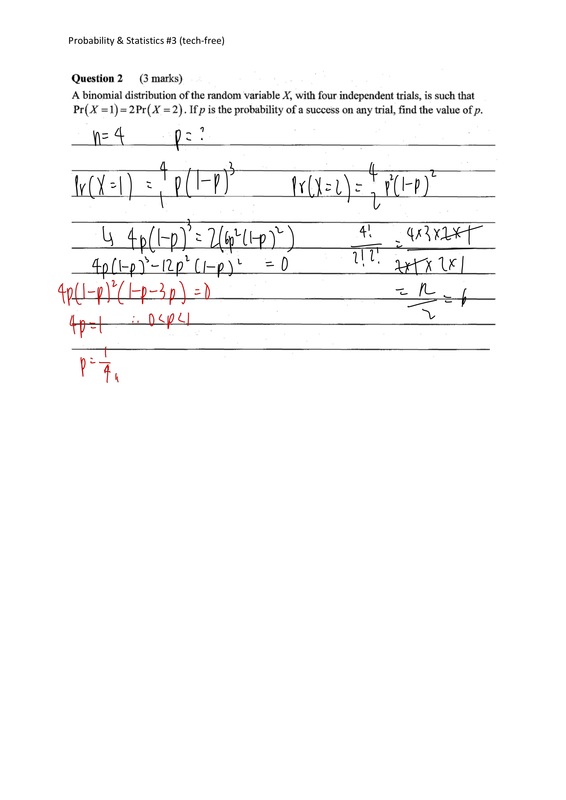 Probability & Statistics #3 (tech-free)
Question 2 (3 marks)
A binomial distribution of the random variable X, with four independent trials, is such that
Pr(X = 1) = 2Pr(X = 2). If p is the probability of a success on any trial, find the value of p.
n=4 p=?
Pr(X=1) = ⁴₁ p(1-p)³ Pr(X=2) = ⁴₂ p²(1-p)²
↳ 4p(1-p)³ = 2(6p²(1-p)²) 4!/2!2! = 4×3×2×1/2×1×2×1
4p(1-p)³-12p²(1-p)² = 0
= 12/2 = 6
4p(1-p)²(1-p-3p) = 0
4p=1 ∴ 0<p<1
p=1/4